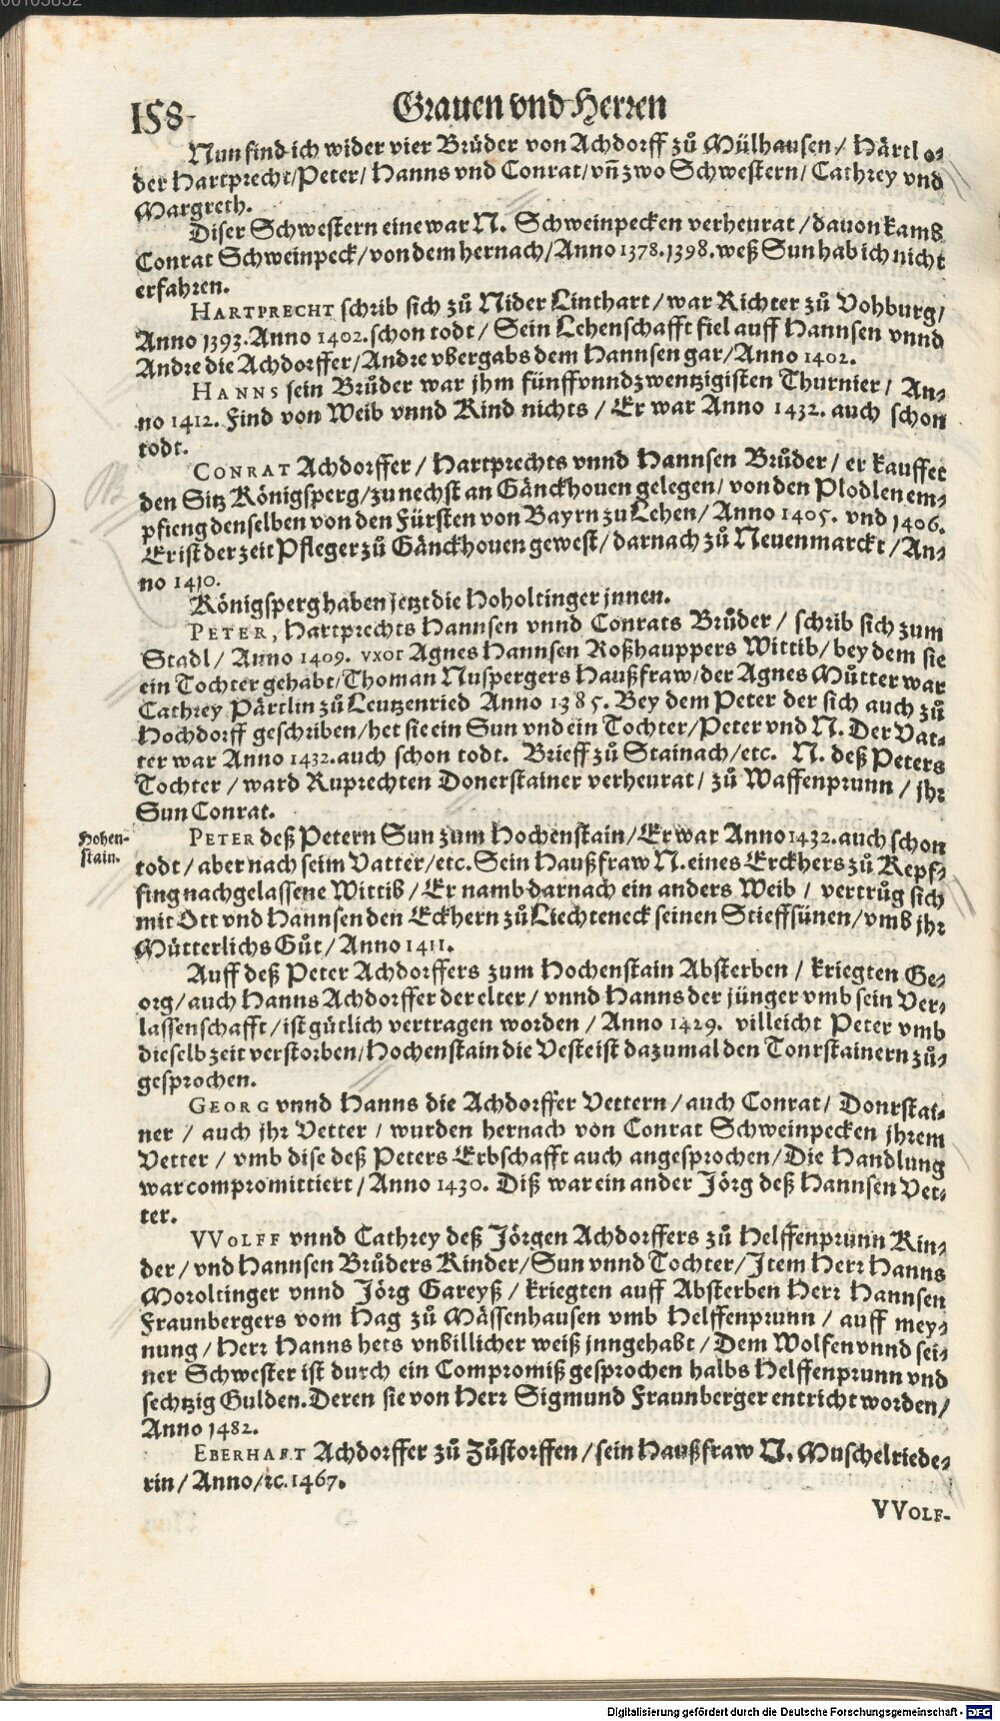 158
Grauen vnd Herren
Nun find ich wider vier Brůder von Achdorff zů Mülhausen / Härtl o⸗
der Hartprecht/Peter/ Hanns vnd Conrat/vñ zwo Schwestern/ Cathrey vnd
Margreth.
Diser Schwestern eine war N. Schweinpecken verheurat /dauon kams
Conrat Schweinpeck/von dem hernach/Anno 1378.1398.weß Sun hab ich nicht
erfahren.
HARTPRECHT schrib sich zů Nider Linthart/war Richter zů Vohburg/
Anno 1393.Anno 1402.schon todt/ Sein Lehenschafft fiel auff Hannsen vnnd
Andre die Achdorffer/Andre vbergabs dem Hannsen gar/Anno 1402.
HANNS sein Brůder war jhm fünffvnndzwentzigisten Thurnier/ An⸗
no 1412. Find von Weib vnnd Kind nichts / Er war Anno 1432. auch schon
todt.
CONRAT Achdorffer / Hartprechts vnnd Hannsen Brůder / er kauffet
den Sitz Königsperg/zu nechst an Gänckhouen gelegen/ von den Plodlen em⸗
pfieng denselben von den Fürsten von Bayrn zu Lehen/ Anno 1405. vnd 1406.
Er ist der zeit Pfleger zů Gänckhouen gewest/darnach zů Neuenmarckt /An⸗
no 1410.
Königsperg haben jetzt die Hoholtinger jnnen.
PETER, Hartprechts Hannsen vnnd Conrats Brůder / schrib sich zum
Stadl/ Anno 1409. vxor Agnes Hannsen Roßhauppers Wittib/ bey dem sie
ein Tochter gehabt/Thoman Nuspergers Haußfraw/der Agnes Můtter war
Cathrey Pärtlin zů Leutzenried Anno 1385. Bey dem Peter der sich auch zů
Hochdorff geschriben/het sie ein Sun vnd ein Tochter/Peter vnd N. Der Vat⸗
ter war Anno 1432.auch schon todt. Brieff zů Stainach/etc. N. deß Peters
Tochter / ward Ruprechten Donerstainer verheurat/ zů Waffenprunn / jhr
Sun Conrat.
Hohen-
stain.
PETER deß Petern Sun zum Hochenstain/Er war Anno 1432.auch schon
todt/aber nach seim Vatter/etc.Sein Haußfraw N.eines Erckhers zů Repf⸗
fing nachgelassene Wittib/Er namb darnach ein anders Weib / vertrůg sich
mit Ott vnd Hannsen den Eckhern zů Liechteneck seinen Stieffsünen/vmb jhr
Mütterlichs Gůt/Anno 1411.
Auff deß Peter Achdorffers zum Hochenstain Absterben / kriegten Ge⸗
org/auch Hanns Achdorffer der elter/ vnnd Hanns der jünger vmb sein Ver⸗
lassenschafft/ist gütlich vertragen worden / Anno 1429. villeicht Peter vmb
dieselb zeit verstorben/Hochenstain die Veste ist dazumal den Tonrstainern zů⸗
gesprochen.
GEORG vnnd Hanns die Achdorffer Vettern /auch Conrat/ Donrstai⸗
ner / auch jhr Vetter / wurden hernach von Conrat Schweinpecken jhrem
Vetter / vmb dise deß Peters Erbschafft auch angesprochen/Die Handlung
war compromittiert/Anno 1430. Diß war ein ander Jörg deß Hannsen Vet⸗
ter.
VVOLFF vnnd Cathrey deß Jörgen Achdorffers zů Helffenprunn Kin⸗
der/vnd Hannsen Brůders Kinder/Sun vnnd Tochter/Jtem Herr Hanns
Moroltinger vnnd Jörg Gareyß/ kriegten auff Absterben Herr Hannsen
Fraunbergers vom Hag zů Mässenhausen vmb Helffenprunn / auff mey⸗
nung/Herr Hanns hets vnbillicher weiß jnngehabt/Dem Wolfen vnnd sei⸗
ner Schwester ist durch ein Compromiß gesprochen halbs Helffenprunn vnd
sechtzig Gulden.Deren sie von Herr Sigmund Fraunberger entricht worden/
Anno 1482.
EBERHART Achdorffer zů Zůstorffen/sein Haußfraw N. Muschelriede⸗
rin/Anno/ꝛc.1467.
VVOLF-
Digitalisierung gefördert durch die Deutsche Forschungsgemeinschaft - DFG